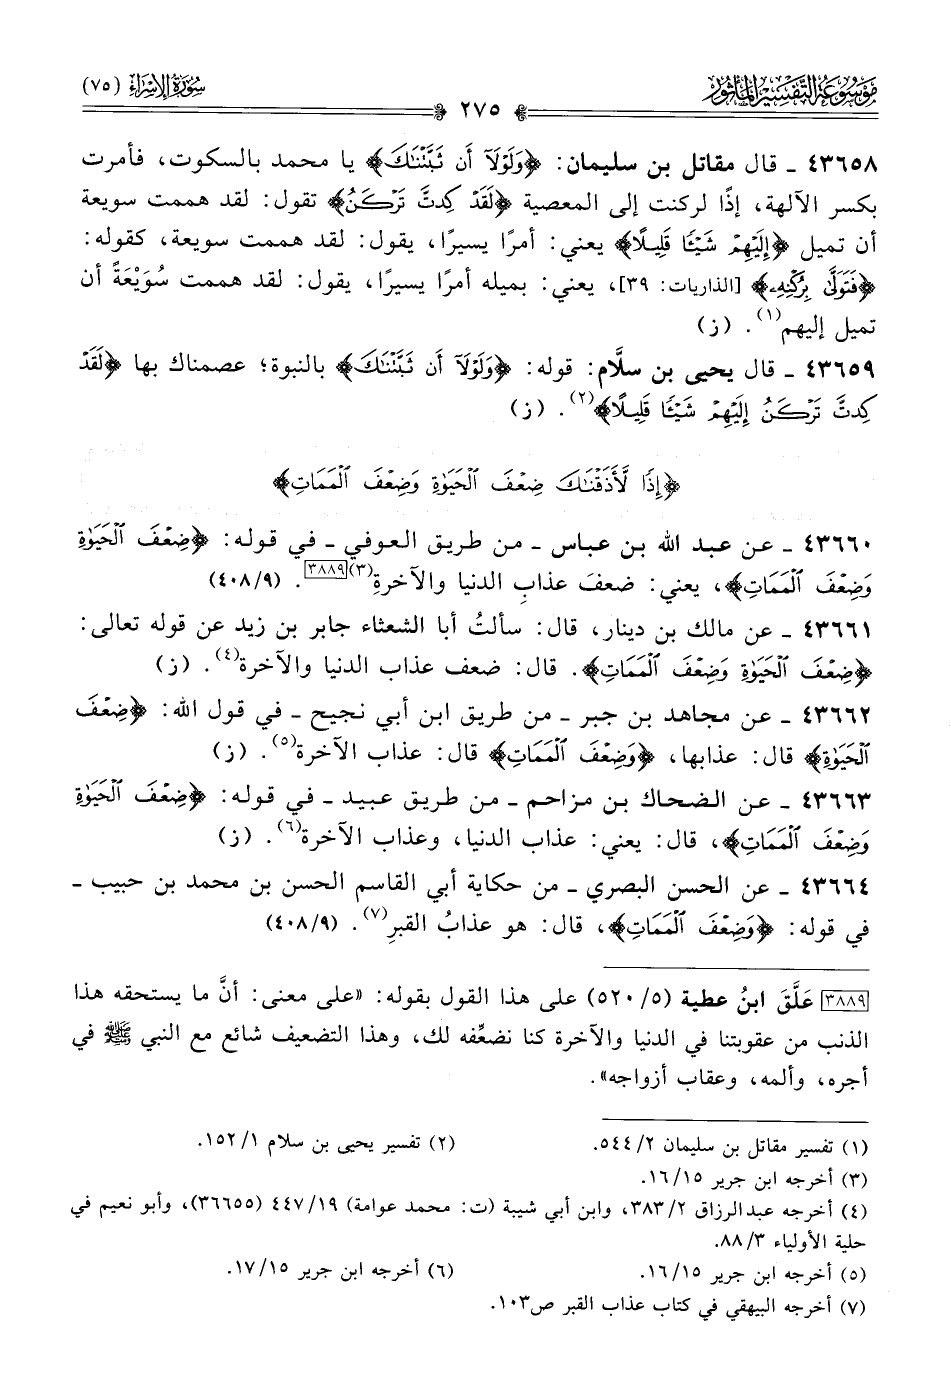 مَوْسُوعَة التَّفْسِير المَأْثُور
سُورَةُ الإِسْرَاء (٧٥)
٢٧٥
٤٣٦٥٨ ـ قال مقاتل بن سليمان: ﴿وَلَوْلَآ أَن ثَبَّتْنَـٰكَ﴾ يا محمد بالسكوت، فأمرت
بكسر الآلهة، إذًا لركنت إلى المعصية ﴿لَقَدْ كِدتَّ تَرْكَنُ﴾ تقول: لقد هممت سويعة
أن تميل ﴿إِلَيْهِمْ شَيْـًٔا قَلِيلًا﴾ يعني: أمرًا يسيرًا، يقول: لقد هممت سويعة، كقوله:
﴿فَتَوَلَّىٰ بِرُكْنِهِۦ﴾ [الذاريات: ٣٩]، يعني: بميله أمرًا يسيرًا، يقول: لقد هممت سُوَيْعَةً أن
تميل إليهم(١). (ز)
٤٣٦٥٩ ـ قال يحيى بن سلَّام: قوله: ﴿وَلَوْلَآ أَن ثَبَّتْنَـٰكَ﴾ بالنبوة؛ عصمناك بها ﴿لَقَدْ
كِدتَّ تَرْكَنُ إِلَيْهِمْ شَيْـًٔا قَلِيلًا﴾(٢). (ز)
﴿إِذًا لَّأَذَقْنَـٰكَ ضِعْفَ ٱلْحَيَوٰةِ وَضِعْفَ ٱلْمَمَاتِ﴾
٤٣٦٦٠ ـ عن عبد الله بن عباس ـ من طريق العوفي ـ في قوله: ﴿ضِعْفَ ٱلْحَيَوٰةِ
وَضِعْفَ ٱلْمَمَاتِ﴾، يعني: ضعفَ عذابِ الدنيا والآخرةِ(٣)[٣٨٨٩]. (٤٠٨/٩)
٤٣٦٦١ ـ عن مالك بن دينار، قال: سألتُ أبا الشعثاء جابر بن زيد عن قوله تعالى:
﴿ضِعْفَ ٱلْحَيَوٰةِ وَضِعْفَ ٱلْمَمَاتِ﴾. قال: ضعف عذاب الدنيا والآخرة(٤). (ز)
٤٣٦٦٢ ـ عن مجاهد بن جبر ـ من طريق ابن أبي نجيح ـ في قول الله: ﴿ضِعْفَ
ٱلْحَيَوٰةِ﴾ قال: عذابها، ﴿وَضِعْفَ ٱلْمَمَاتِ﴾ قال: عذاب الآخرة(٥). (ز)
٤٣٦٦٣ ـ عن الضحاك بن مزاحم ـ من طريق عبيد ـ في قوله: ﴿ضِعْفَ ٱلْحَيَوٰةِ
وَضِعْفَ ٱلْمَمَاتِ﴾، قال: يعني: عذاب الدنيا، وعذاب الآخرة(٦). (ز)
٤٣٦٦٤ ـ عن الحسن البصري ـ من حكاية أبي القاسم الحسن بن محمد بن حبيب ـ
في قوله: ﴿وَضِعْفَ ٱلْمَمَاتِ﴾، قال: هو عذابُ القبرِ(٧). (٤٠٨/٩)
[٣٨٨٩] عَلَّقَ ابنُ عطية (٥٢٠/٥) على هذا القول بقوله: «على معنى: أنَّ ما يستحقه هذا
الذنب من عقوبتنا في الدنيا والآخرة كنا نضعِّفه لك، وهذا التضعيف شائع مع النبي ﷺ في
أجره، وألمه، وعقاب أزواجه».
(١) تفسير مقاتل بن سليمان ٥٤٤/٢.
(٢) تفسير يحيى بن سلام ١٥٢/١.
(٣) أخرجه ابن جرير ١٦/١٥.
(٤) أخرجه عبدالرزاق ٣٨٣/٢، وابن أبي شيبة (ت: محمد عوامة) ٤٤٧/١٩ (٣٦٦٥٥)، وأبو نعيم في
حلية الأولياء ٨٨/٣.
(٥) أخرجه ابن جرير ١٦/١٥.
(٦) أخرجه ابن جرير ١٧/١٥.
(٧) أخرجه البيهقي في كتاب عذاب القبر ص١٠٣.